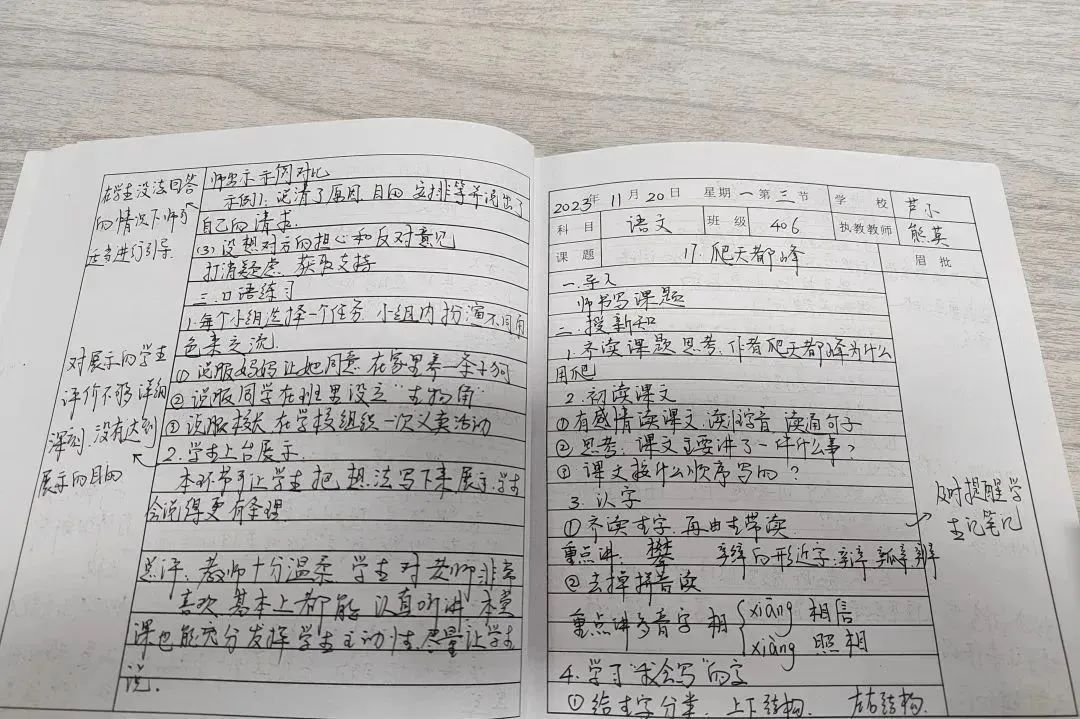 在学生没法回答
的情况下师可
适当进行引导
对展示的学生
评价不够详细
深刻,没有达到
展示的目的
师出示示例对比
示例1:说清了原因 目的 安排等并说出了
自己的请求.
(3)设想对方的担心和反对意见
打消疑虑 获取支持
三.口语练习
1.每个小组选择一个任务 小组内扮演不同角
色来交流.
① 说服妈妈让她同意在家里养一条小狗
② 说服同学在班里设立“生物角”
③ 说服校长在学校组织一次义卖活动
2.学生上台展示.
本环节可让学生把想法写下来展示,学生
会说得更有条理.
总评:教师十分温柔,学生对老师非常
喜欢,基本上都能认真听讲,本堂
课也能充分发挥学生主动性,尽量让学生
说.
2023年 11月 20日 星期 一 第 三 节 学校 芦小
科目 语文 班级 406 执教教师 熊英
课题 17.爬天都峰 眉批
一.导入
师书写课题
二.授新知
1.齐读课题 思考:作者爬天都峰为什么
用爬
2.初读课文
①有感情读课文,读准字音,读通句子
②思考:课文主要讲了一件什么事?
③课文按什么顺序写的?
3.认字
①齐读生字,再由生带读
重点讲:攀 辫的形近字:辛辛 瓣 辨
②去掉拼音读
重点讲多音字 相 xiāng 相信
xiàng 照相
4.学习“我会写”的字
①给生字分类.上下结构. 左右结构.
及时提醒学
生记笔记